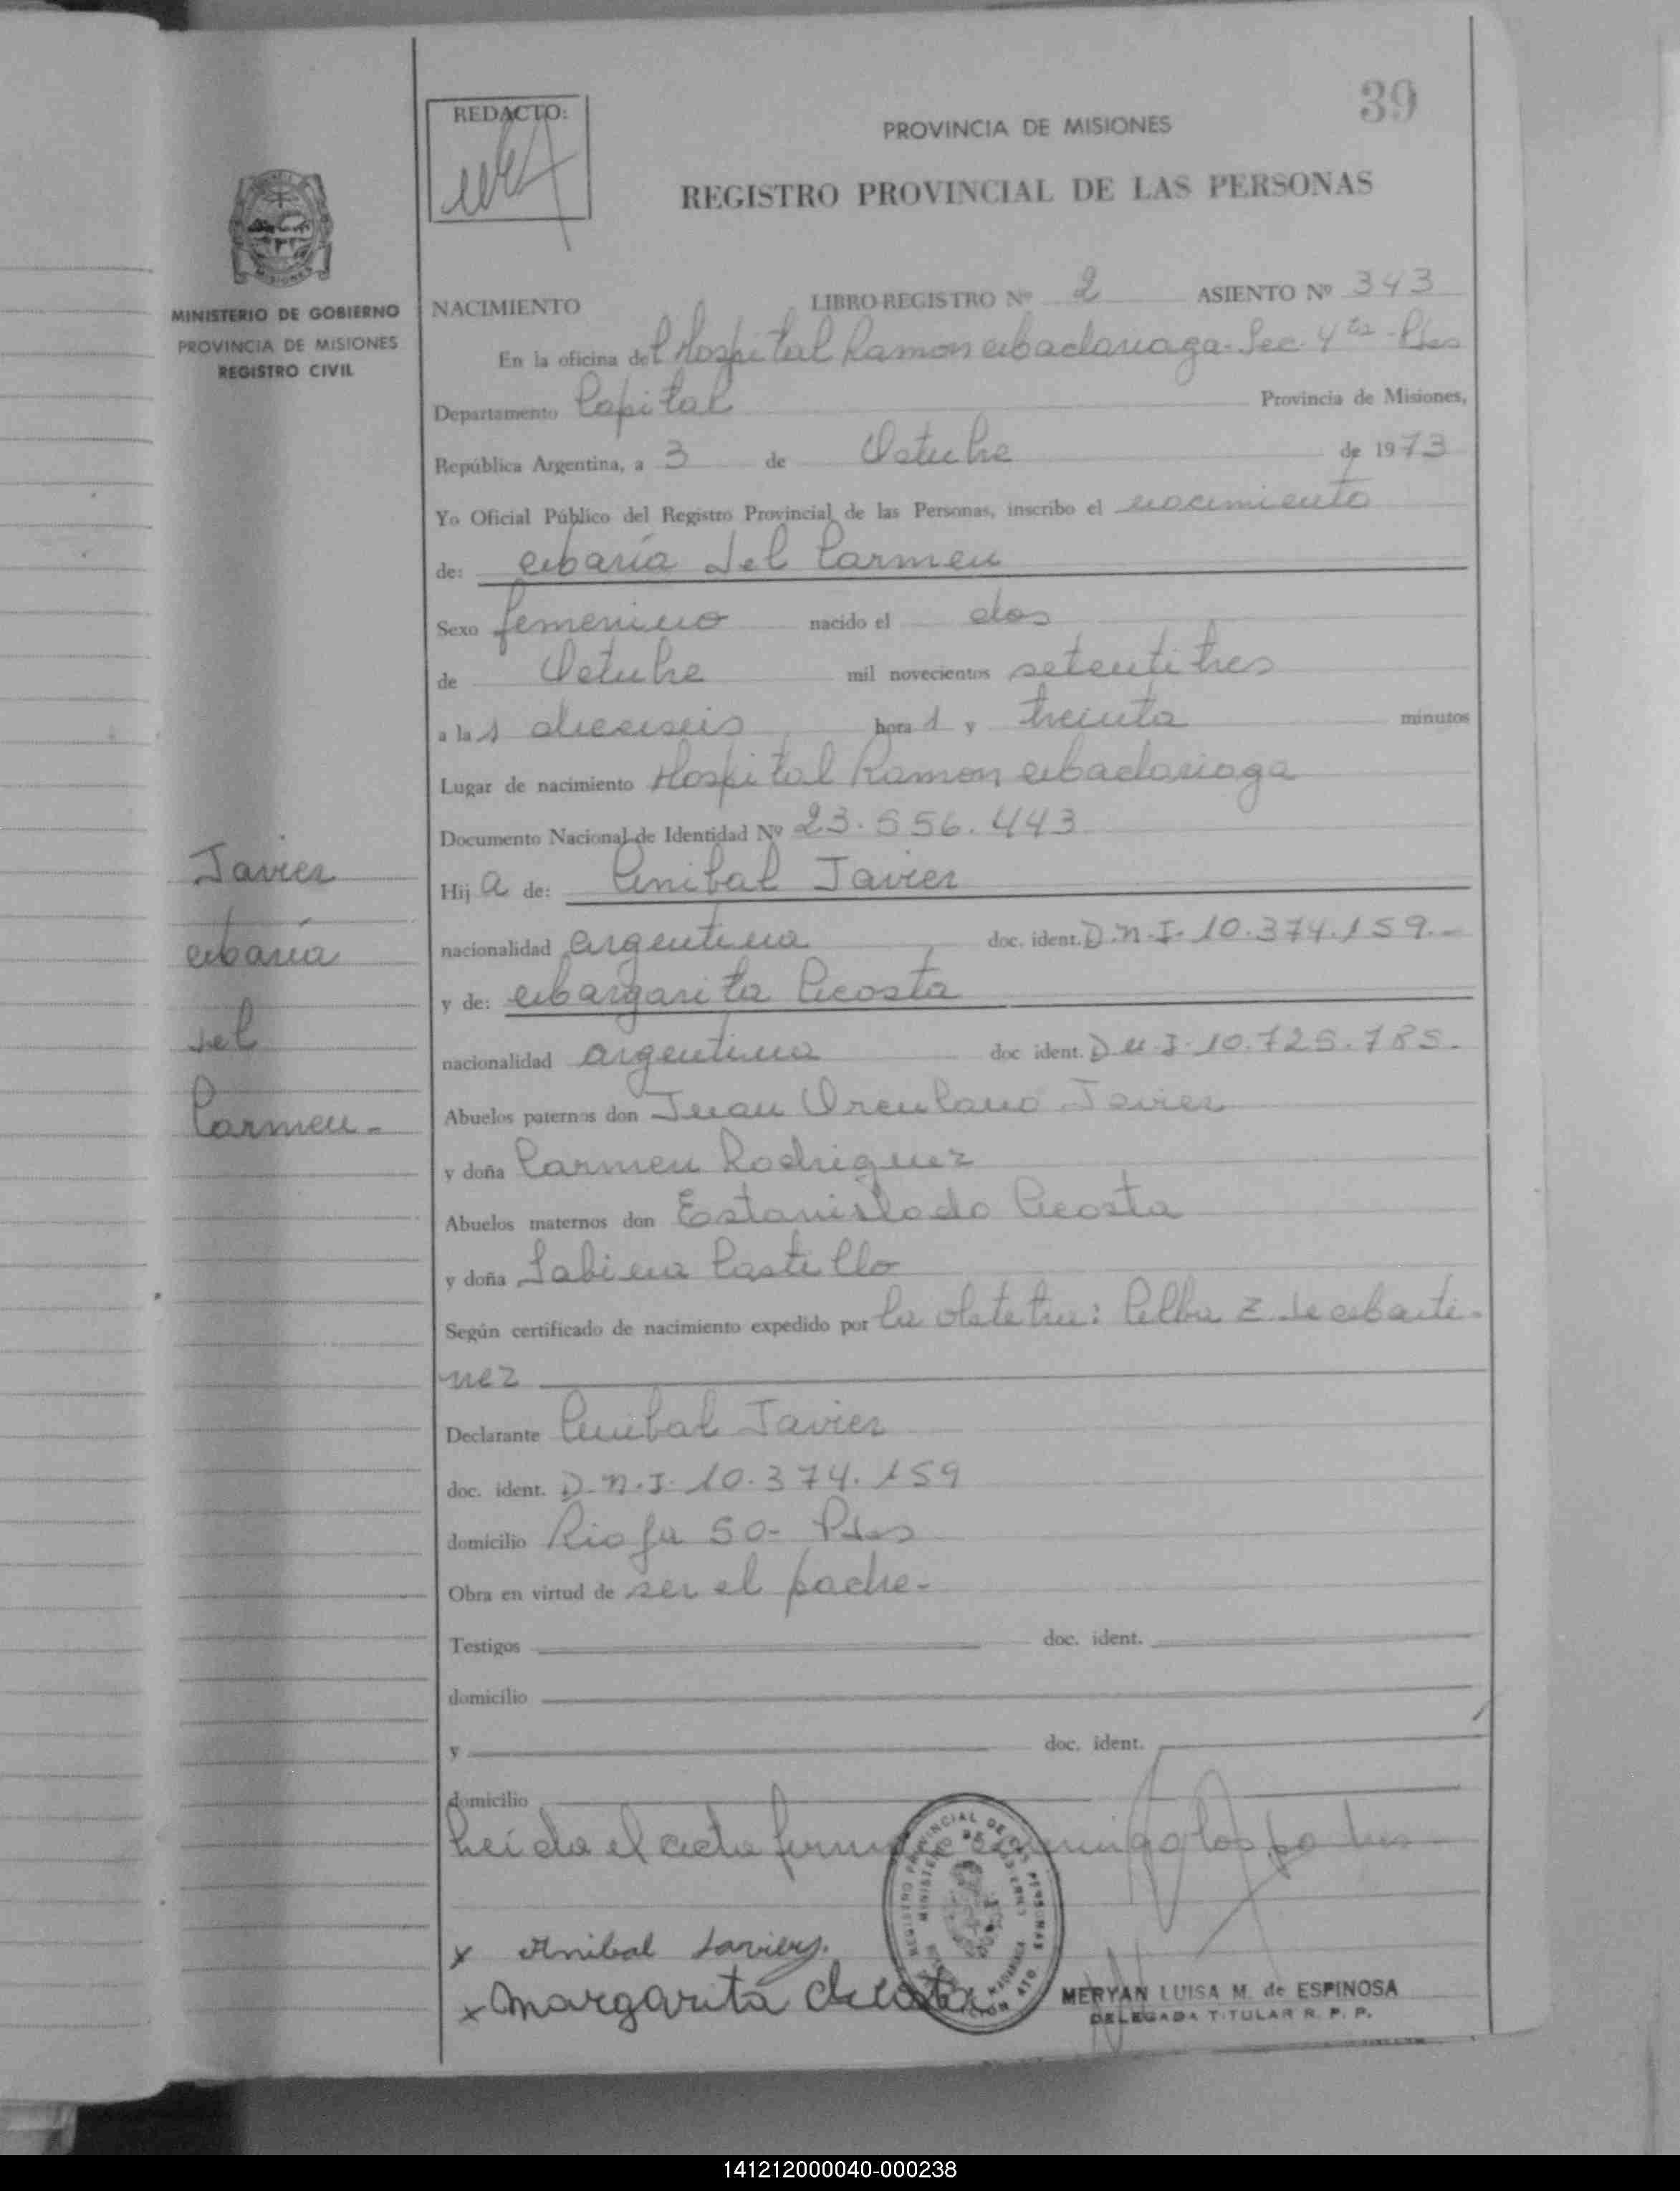 39
REDACTO:
PROVINCIA DE MISIONES
REGISTRO PROVINCIAL DE LAS PERSONAS
MINISTERIO DE GOBIERNO
PROVINCIA DE MISIONES
REGISTRO CIVIL
NACIMIENTO LIBRO REGISTRO Nº 2 ASIENTO Nº 343
En la oficina del Hospital Ramon Madariaga - Sec. 4ta - Pdas
Departamento Capital Provincia de Misiones,
República Argentina, a 3 de Octubre de 1973
Yo Oficial Público del Registro Provincial de las Personas, inscribo el nacimiento
de: María del Carmen
Sexo femenino nacido el dos
de Octubre mil novecientos setentitres
a las dieciseis horas y treinta minutos
Lugar de nacimiento Hospital Ramon Madariaga
Documento Nacional de Identidad Nº 23.556.443
Hija de: Anibal Javier
nacionalidad argentina doc. ident. D.N.I. 10.374.159.-
y de: Margarita Acosta
nacionalidad argentina doc ident. D.N.I. 10.725.785.
Abuelos paternos don Juan Orculano Javier
y doña Carmen Rodriguez
Abuelos maternos don Estanislado Acosta
y doña Sabina Castillo
Según certificado de nacimiento expedido por la obstetra: Elba Z de Marti-
nez
Declarante Anibal Javier
doc. ident. D.N.I. 10.374.159
domicilio Rioja 50 - Pdas
Obra en virtud de ser el padre.-
Testigos doc. ident.
domicilio
y doc. ident.
domicilio
Leída el acta firman conmigo los padres
x Anibal Javier
x Margarita Acosta
MERYAN LUISA M. de ESPINOSA
DELEGADA TITULAR R. P. P.
Javier
María
del
Carmen.-
141212000040-000238